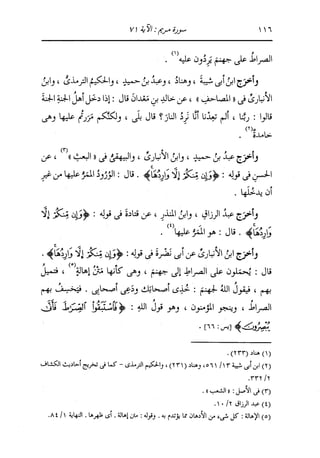 ١١٦
سورة مريم : الآية ٧١
الصراط على جهنم يَرِدُون عليه(١) .
وأخرج ابنُ أبي شيبةَ ، وهنادٌ ، وعبدُ بنُ حميدٍ ، والحكيمُ الترمذيُّ ، وابنُ
الأنباريِّ في «المصاحفِ» ، عن خالدِ بنِ مَعْدانَ قال : إذا دخَل أهلُ الجنةِ الجنةَ
قالوا : ربَّنا ، ألم تَعِدْنا أنَّا نَرِدُ النارَ؟ قال بلَى ، ولكنكم مَرَرتُم عليها وهي
خامدةٌ(٢) .
وأخرج عبدُ بنُ حميدٍ ، وابنُ الأنباريِّ ، والبيهقيُّ في «البعثِ»(٣) ، عن
الحسنِ في قولِه : ﴿وَإِن مِّنكُمْ إِلَّا وَارِدُهَا﴾ . قال : الوُرُودُ الممرُّ عليها من غيرِ
أن يدخُلَها .
وأخرج عبدُ الرزاقِ ، وابنُ المنذرِ ، عن قتادةَ في قولِه : ﴿وَإِن مِّنكُمْ إِلَّا
وَارِدُهَا﴾ . قال : هو الممرُّ عليها(٤) .
وأخرج ابنُ الأنباريِّ عن أبي نَضْرةَ في قولِه : ﴿وَإِن مِّنكُمْ إِلَّا وَارِدُهَا﴾ .
قال : يُحمَلون على الصراطِ إلى جهنمَ ، وهي كأنها مَتْنُ إهالةٍ(٥) ، فتميلُ
بهم ، فيقولُ اللهُ لجهنمَ : خُذِى أصحابَك ودَعِى أصحابى . فيُخسَفُ بهم
الصراطُ ، وينجو المؤمنون ، وهو قولُ اللهِ : ﴿فَاسْتَبَقُوا الصِّرَاطَ فَأَنَّى
يُبْصِرُونَ﴾ [يس: ٦٦] .
(١) هناد (٢٣٣) .
(٢) ابن أبي شيبة ١٣/ ٥٦١، وهناد (٢٣١) ، والحكيم الترمذي - كما في تخريج أحاديث الكشاف
٢/ ٣٣٢.
(٣) في الأصل : «الشعب» .
(٤) عبد الرزاق ٢/ ١٠.
(٥) الإهالة : كل شيء من الأدهان مما يؤتدم به . وقوله : متن إهالة . أي ظهرها . النهاية ١/ ٨٤.